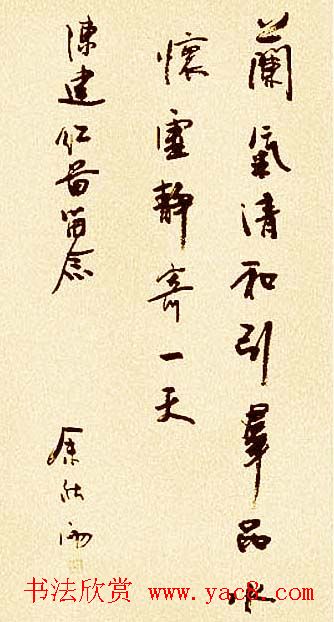 蘭氣清和引羣品水
懷虛靜寄一天
陳建红留念
余秋雨
书法欣赏 www.yac8.com